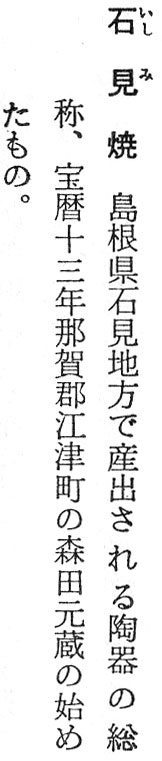 石見焼 島根県石見地方で産出される陶器の総
称、宝暦十三年那賀郡江津町の森田元蔵の始め
たもの。
いし み